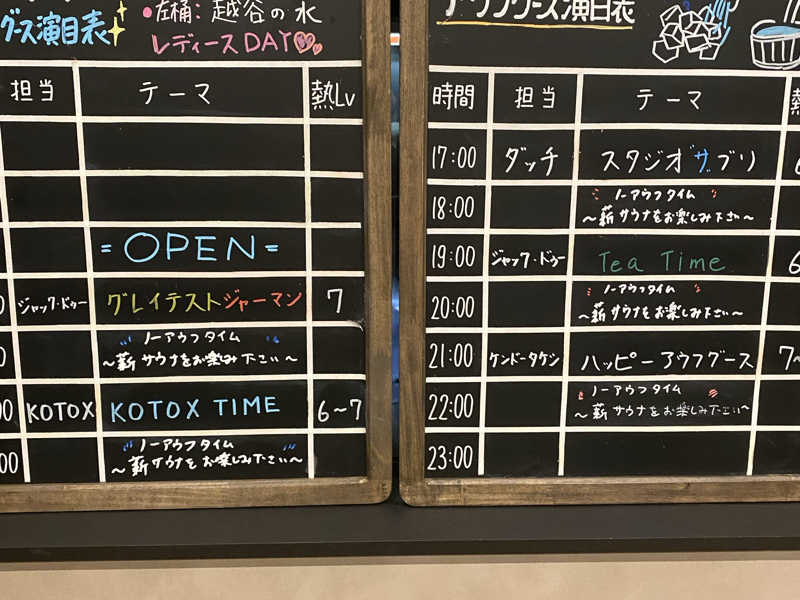 グース演目表
•左桶: 越谷の水
レディースDAY
担当 テーマ 熱Lv
=OPEN=
ジャック・ドゥー グレイテストジャーマン 7
ノーアウフタイム
～薪サウナをお楽しみ下さい～
KOTOX KOTOX TIME 6～7
ノーアウフタイム
～薪サウナをお楽しみ下さい～
アウフグース演目表
時間 担当 テーマ 熱
17:00 ダッチ スタジオサブリ 6
18:00 ノーアウフタイム
～薪サウナをお楽しみ下さい～
19:00 ジャック・ドゥー Tea Time 6
20:00 ノーアウフタイム
～薪サウナをお楽しみ下さい～
21:00 ケンドータケシ ハッピーアウフグース 7～
22:00 ノーアウフタイム
～薪サウナをお楽しみ下さい～
23:00